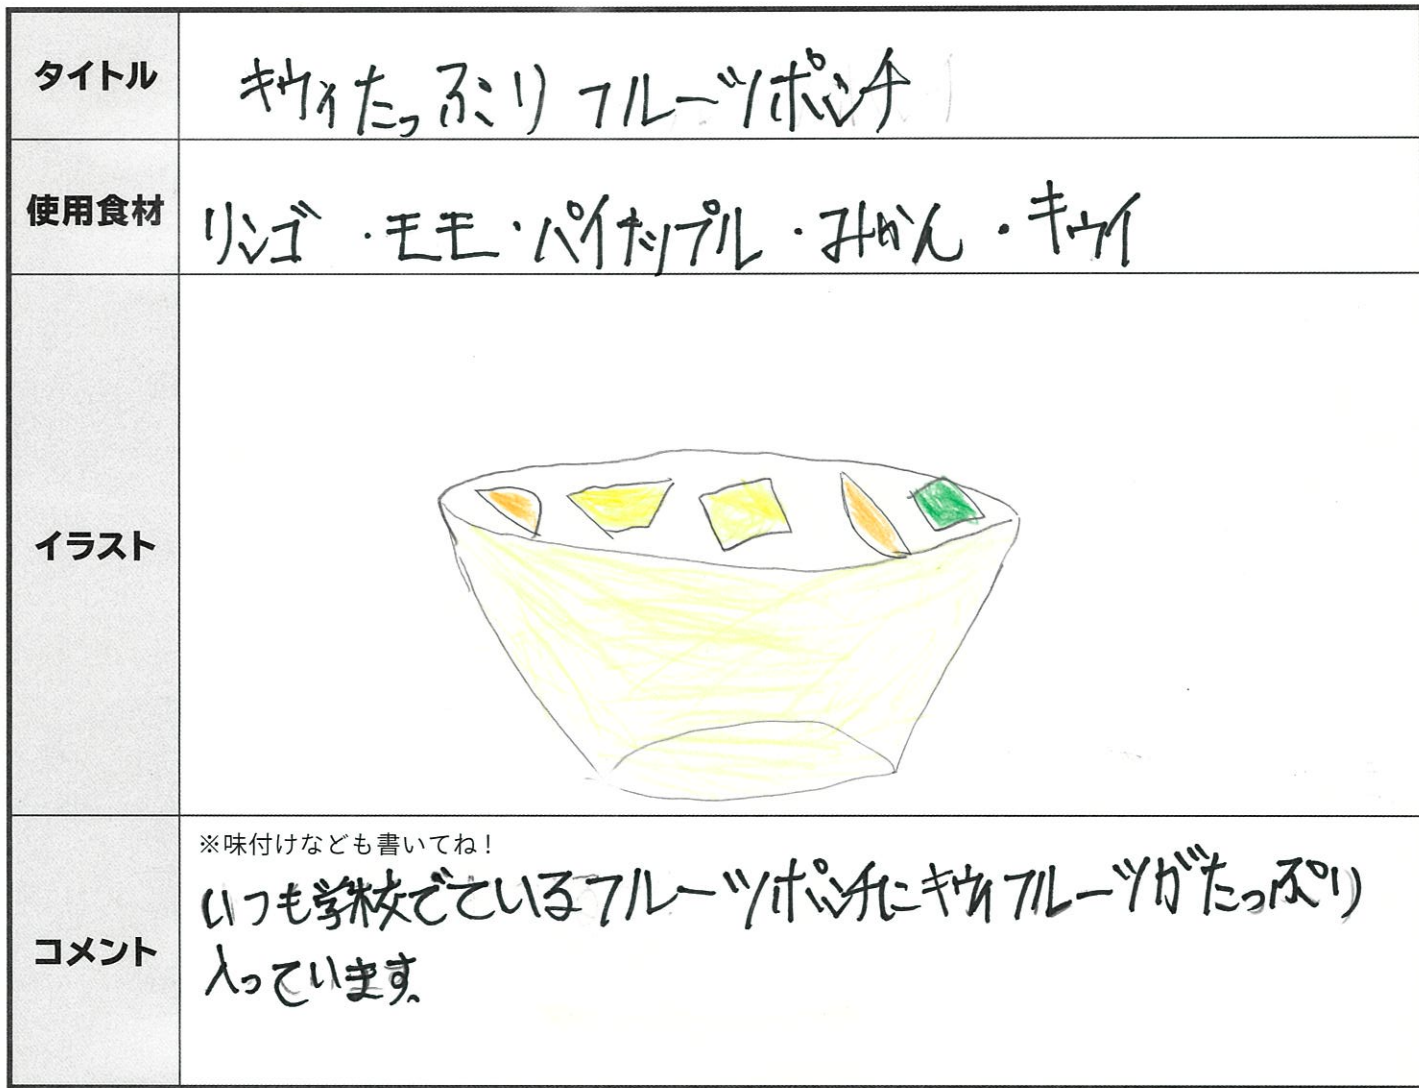 タイトル
キウイたっぷり フルーツポンチ
使用食材
リンゴ ・モモ・パイナップル・みかん・キウイ
イラスト
※味付けなども書いてね!
コメント
いつも学校でているフルーツポンチにキウイフルーツがたっぷり
入っています。